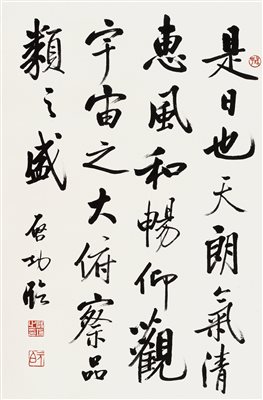 是日也天朗氣清
惠風和暢仰觀
宇宙之大俯察品
類之盛
啓功臨